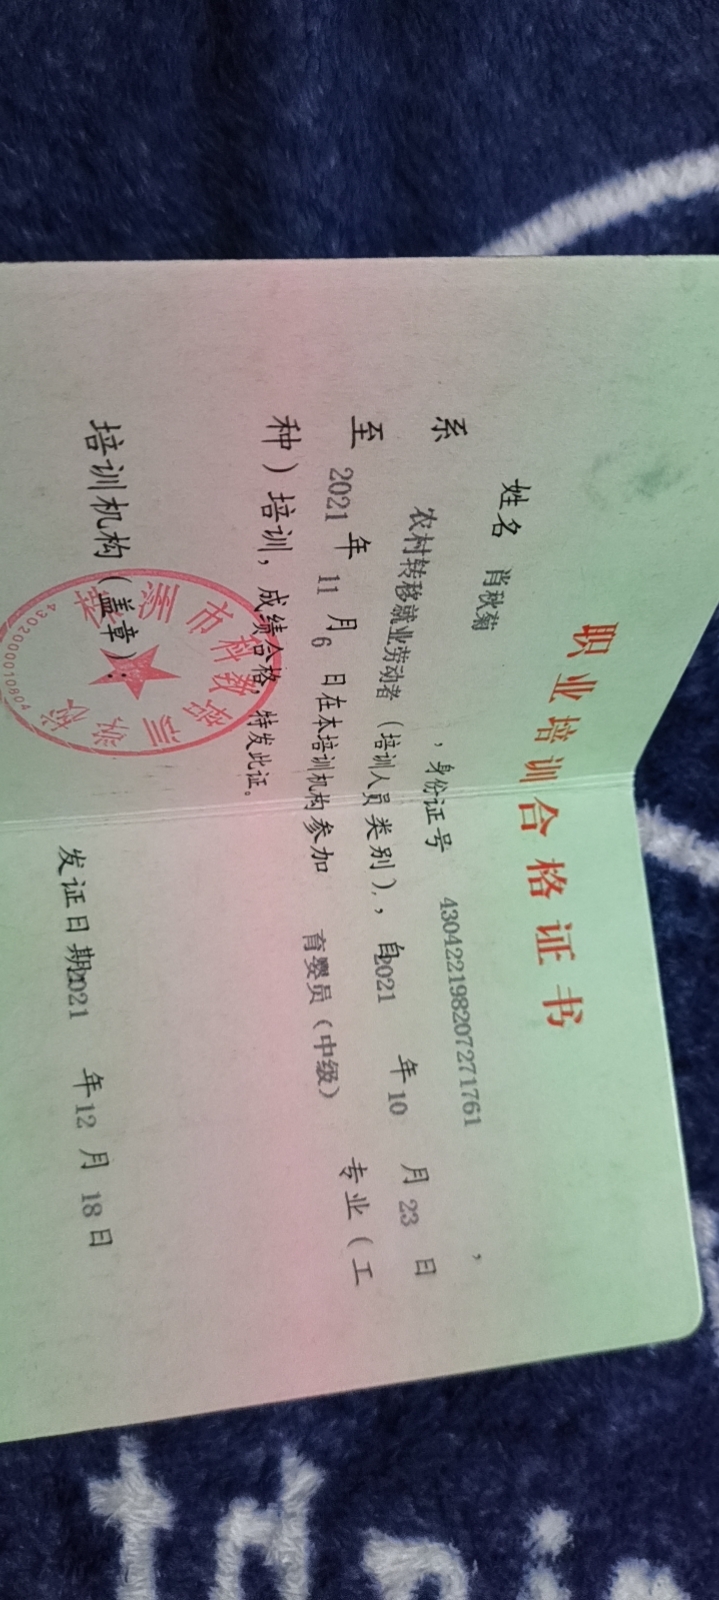 职业培训合格证书
姓名 肖秋菊 ,身份证号 430422198207271761 ,
系 农村转移就业劳动者(培训人员类别),自2021 年10 月23 日
至2021 年 11 月6 日在本培训机构参加 育婴员(中级) 专业(工
种)培训,成绩合格,特发此证。
培训机构(盖章):
发证日期2021 年12 月 18日
株洲市科教培训学校
4302000010804